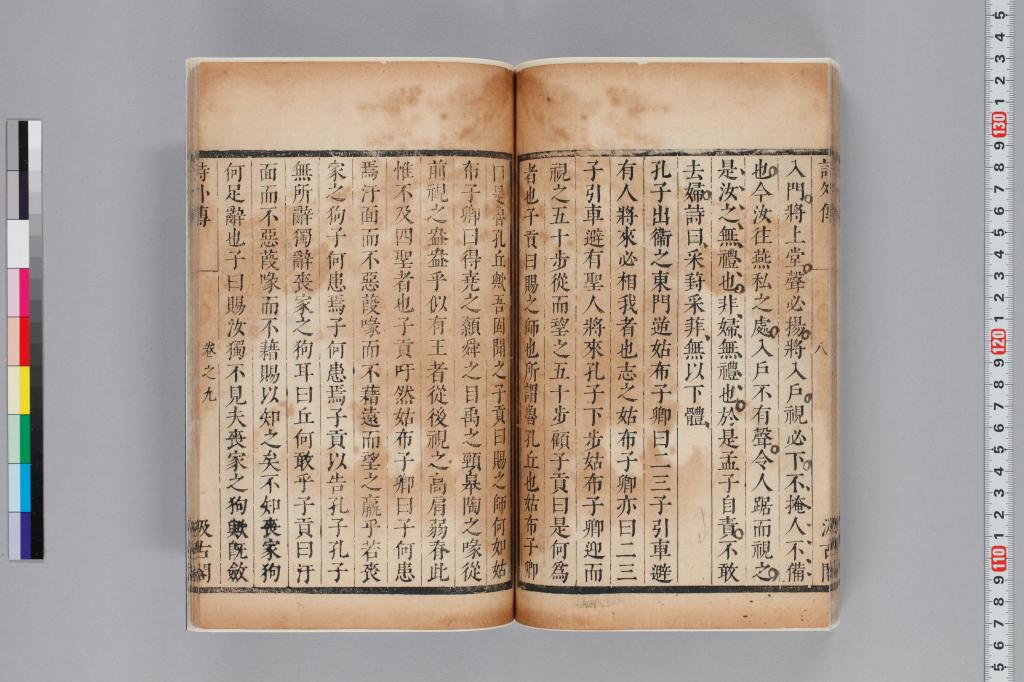 詩外傳
八
汲古閣
入門將上堂聲必揚將入戶視必下不掩人不備
也今汝往燕私之處入戶不有聲令人踞而視之
是汝之無禮也非婦無禮也於是孟子自責不敢
去婦詩曰采葑采菲無以下體
孔子出衞之東門逆姑布子卿曰二三子引車避
有人將來必相我者也志之姑布子卿亦曰二三
子引車避有聖人將來孔子下步姑布子卿迎而
視之五十步從而望之五十步顧子貢曰是何爲
者也子貢曰賜之師也所謂魯孔丘也姑布子卿
曰是魯孔丘歟吾固聞之子貢曰賜之師何如姑
布子卿曰得堯之顙舜之目禹之頸皋陶之喙從
前視之盎盎乎似有王者從後視之高肩弱脊此
惟不及四聖者也子貢吁然姑布子卿曰子何患
焉汙面而不惡葭喙而不藉遠而望之羸乎若喪
家之狗子何患焉子何患焉子貢以告孔子孔子
無所辭獨辭喪家之狗耳曰丘何敢乎子貢曰汙
面而不惡葭喙而不藉賜以知之矣不知喪家狗
何足辭也子曰賜汝獨不見夫喪家之狗歟旣斂
詩外傳
卷之九
汲古閣